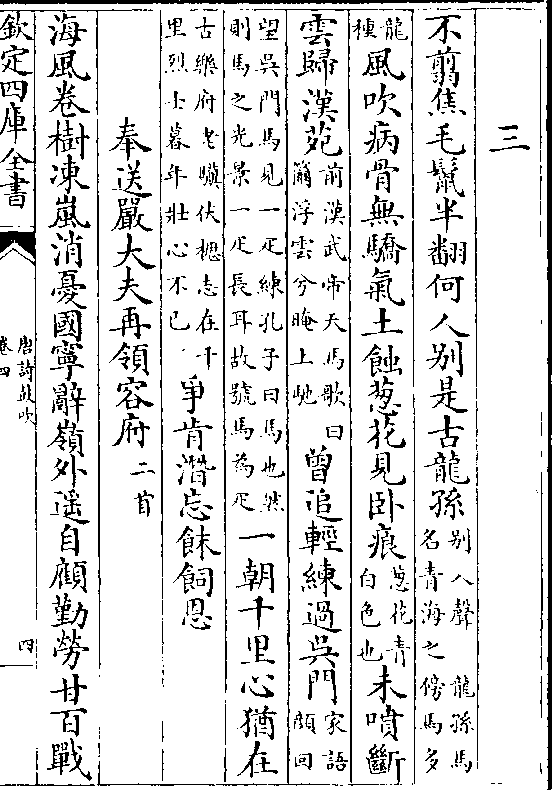 三
不翦焦毛鬛半翻何人别是古龍孫别入聲龍孫馬名青海之傍馬多
龍種風吹病骨無驕氣土蝕葱花見卧痕葱花青白色也未噴斷
雲歸漢苑前漢武帝天馬歌曰籋浮雲兮晻上馳曾追輕練過吳門家語顔回
望吳門馬見一疋練孔子曰馬也然則馬之光景一疋長耳故號馬為疋一朝千里心猶在
古樂府老驥伏櫪志在千里烈士暮年壯心不已爭肯潛忘餗飼恩
奉送嚴大夫再領容府二首
海風卷樹凍嵐消憂國寧辭嶺外遥自顧勤勞甘百戰
欽定四庫全書
唐詩鼓吹
卷四
四